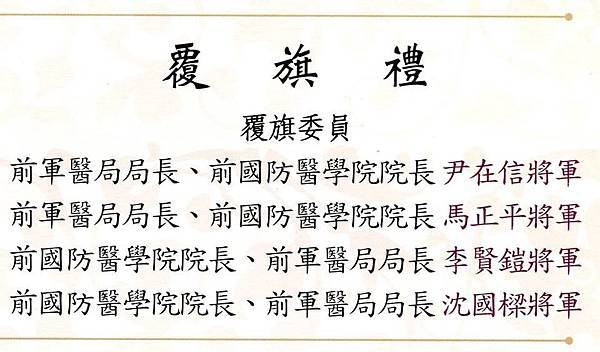 覆旗禮
覆旗委員
前軍醫局局長、前國防醫學院院長 尹在信將軍
前軍醫局局長、前國防醫學院院長 馬正平將軍
前國防醫學院院長、前軍醫局局長 李賢鎧將軍
前國防醫學院院長、前軍醫局局長 沈國樑將軍